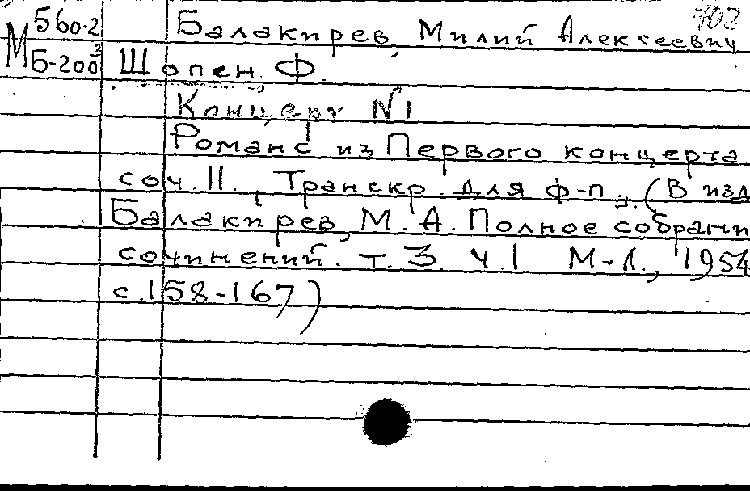 М 560-2 Балакирев, Милий Алексеевич 702
Б-200³ Шопен Ф.
Концерт №1
Романс из Первого концерта
соч. 11. Транскр. для ф-п. (В изд
Балакирев, М. А. Полное собрани
сочинений. т. 3. ч. 1 М-Л., 1954
с. 158-167)